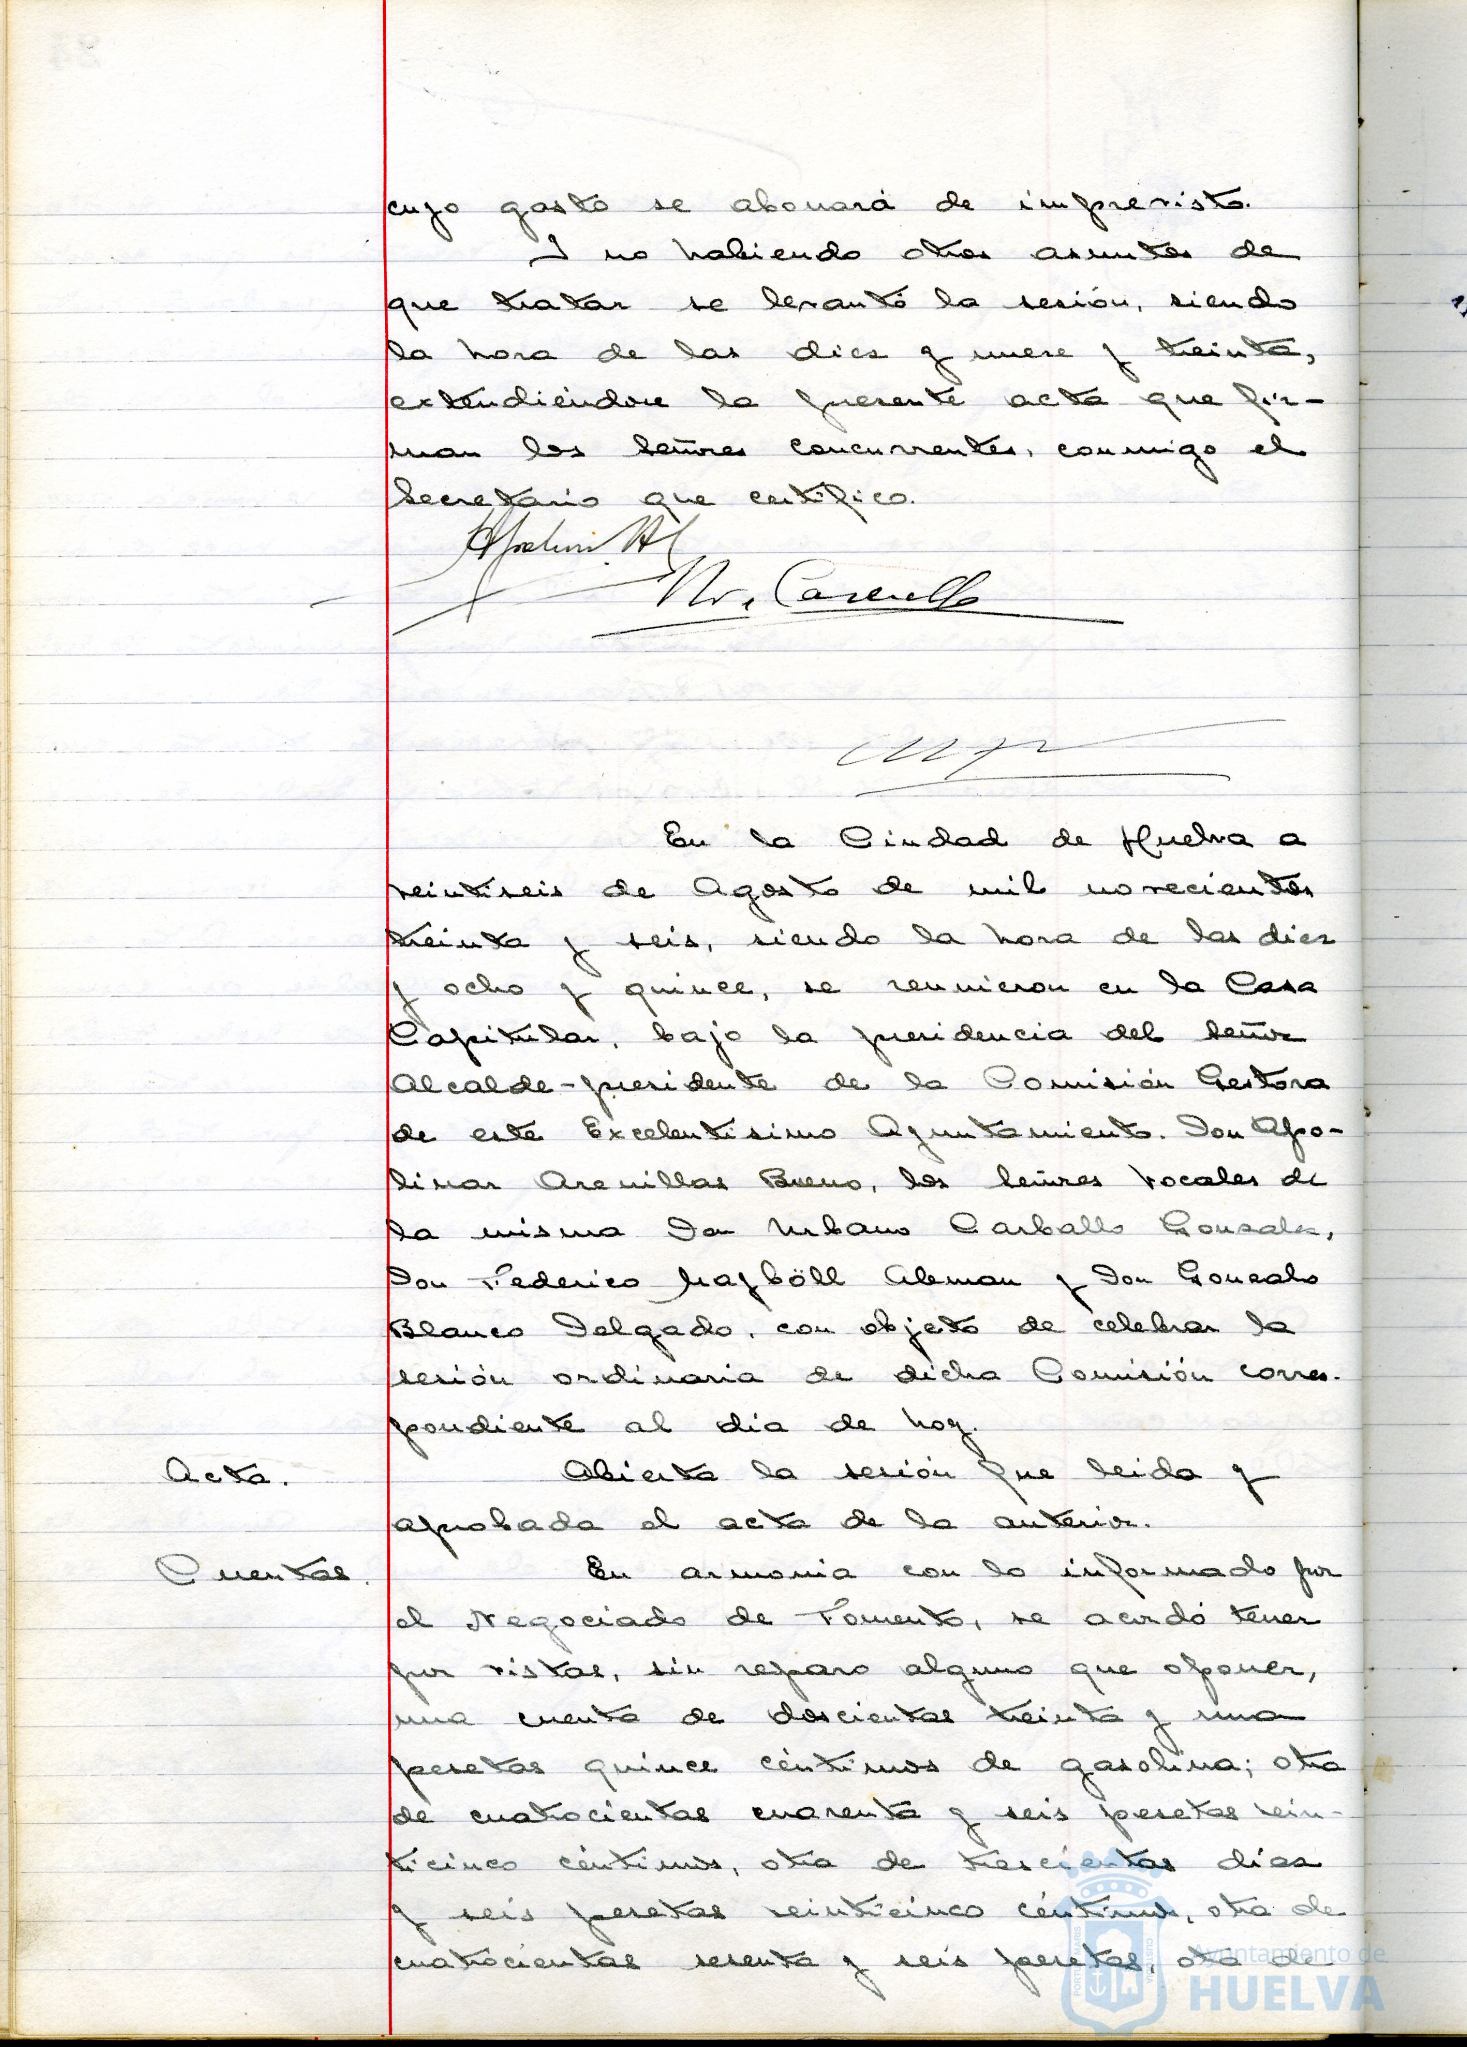 cuyo gasto se abonará de imprevisto.
Y no habiendo otros asuntos de
que tratar se levantó la sesión, siendo
la hora de las diez y nueve y treinta,
extendiéndose la presente acta que fir-
man los señores concurrentes, conmigo el
Secretario que certifico.
En la Ciudad de Huelva a
veintiseis de Agosto de mil novecientos
treinta y seis, siendo la hora de las diez
y ocho y quince, se reunieron en la Casa
Capitular, bajo la presidencia del Señor
Alcalde-presidente de la Comisión Gestora
de este Excelentisimo Ayuntamiento. Don Apo-
linar Arenillas Bueno, los Señores Vocales de
la misma Don Urbano Carballo Gonzalez,
Don Federico Mayböll Aleman y Don Gonzalo
Blanco Delgado, con objeto de celebrar la
sesión ordinaria de dicha Comisión corres-
pondiente al día de hoy.
Acta. Abierta la sesión fue leida y
aprobada el acta de la anterior.
Cuentas. En armonia con lo informado por
el Negociado de Fomento, se acordó tener
por vistas, sin reparo alguno que oponer,
una cuenta de doscientas treinta y una
pesetas quince céntimos de gasolina; otra
de cuatrocientas cuarenta y seis pesetas vein-
ticinco céntimos, otra de trescientas diez
y seis pesetas veinticinco céntimos, otra de
cuatrocientas sesenta y seis pesetas, otra de
Ayuntamiento de
HUELVA